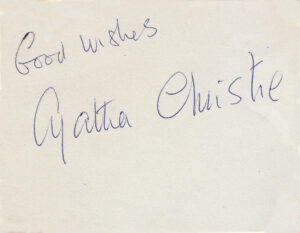 Good wishes
Agatha Christie